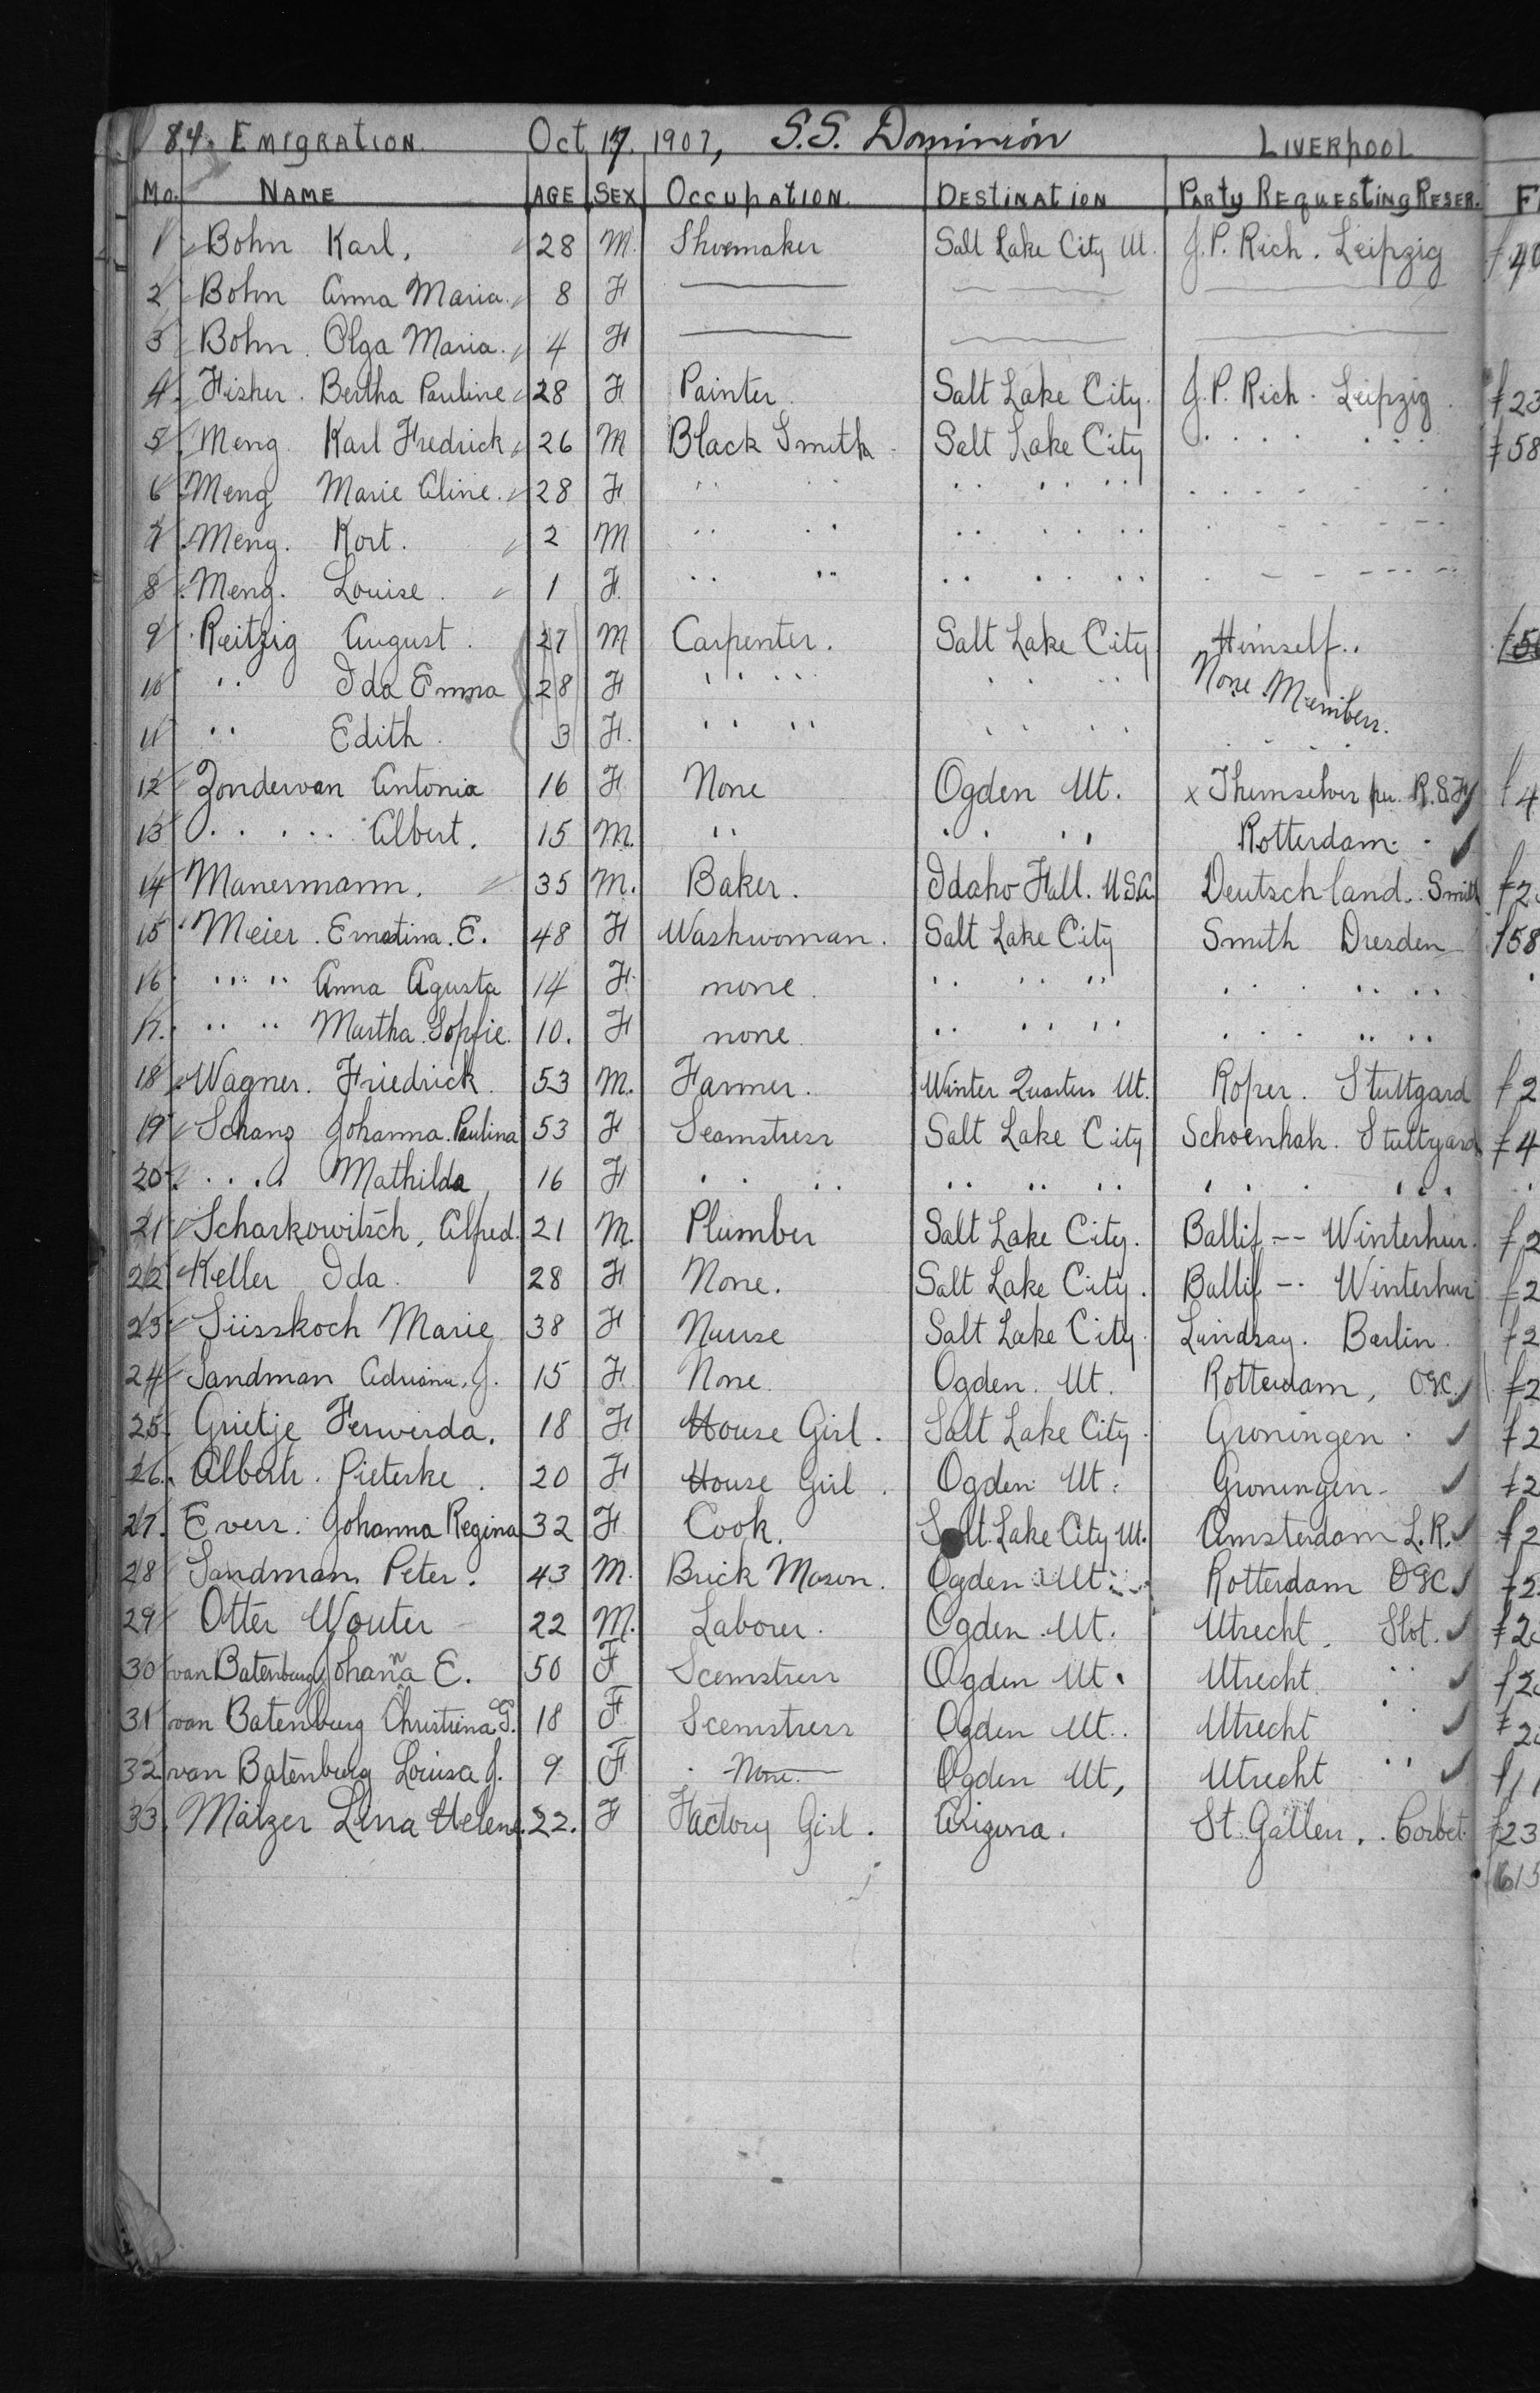 84. EMIGRATION. Oct 17, 1907, S.S. Dominion LIVERPOOL
No. NAME AGE SEX OCCUPATION. DESTINATION PARTY REQUESTING RESER.
1 Bohn Karl. 28 M. Shoemaker Salt Lake City Ut. J.P. Rich. Leipzig
2 Bohn Anna Maria. 8 F
3 Bohn. Olga Maria. 4 F
4. Fisher. Bertha Pauline 28 F Painter. Salt Lake City. J.P. Rich. Leipzig. £23
5 Meng Karl Fredrick 26 M Black Smith Salt Lake City . . . . . . . £58
6 Meng Marie Aline. 28 F " " " " " . . . . . . .
7 Meng. Kort. 2 M " " " " " . . . . . . .
8. Meng. Louise. 1 F. " " " " " . . . . . . .
9 Reitzig August. 27 M Carpenter. Salt Lake City Himself..
10 " Ida Emma 28 F " " " " " None Members.
11 " Edith. 3 F. " " " " " . . . .
12 Zondervan Antonia 16 F None Ogden Ut. x Themselves per. R.S.F
13 . . . . . Albert. 15 M. " " " Rotterdam.
14 Manermann. 35 M. Baker. Idaho Fall. U.S.A. Deutschland. Smith
15 Meier. Ernatina. E. 48 F Washwoman. Salt Lake City Smith Dresden £58
16 " " Anna Agusta 14 F. none. " " " . . . " "
17. " " Martha Sopfie. 10. F none. " " " . . . " "
18 Wagner. Friedrick 53 M. Farmer. Winter Quarters Ut. Roper. Stuttgard
19 Schanz Johanna. Paulina 53 F Seamstress Salt Lake City Schoenhak. Stuttgard
20 . . . . Mathilda 16 F . . " " " " . . . " "
21 Scharkowitsch, Alfred. 21 M. Plumber Salt Lake City. Ballif -- Winterhur.
22 Keller Ida. 28 F None. Salt Lake City. Ballif -- Winterhur
23 Süsskoch Marie 38 F Nurse Salt Lake City. Lindsay. Berlin.
24 Sandman Adriana. J. 15 F. None. Ogden. Ut. Rotterdam, OGC.
25. Grietje Ferwerda. 18 F House Girl. Salt Lake City. Groningen.
26. Alberts. Pieterke. 20 F House Girl. Ogden Ut. Groningen.
27. Evers. Johanna Regina 32 F Cook. Salt Lake City Ut. Amsterdam L.R.
28 Sandman. Peter. 43 M. Brick Mason. Ogden Ut. Rotterdam OGC
29 Otter Wouter 22 M. Laborer. Ogden. Ut. Utrecht. Slot.
30 van Batenburg Johanna E. 50 F Scemstress Ogden Ut. Utrecht "
31 van Batenburg Christiena G. 18 F Scemstress Ogden Ut. Utrecht "
32 van Batenburg Louisa J. 9 F None. Ogden Ut, Utrecht "
33. Mälzer Lina Helene. 22. F Factory Girl. Arizona. St. Gallen. Corbet. £23
615